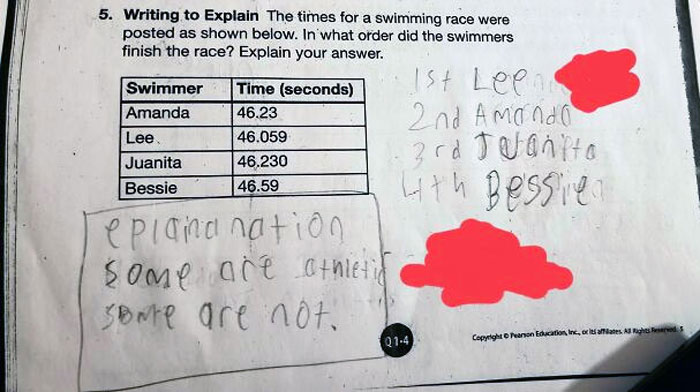 5. Writing to Explain The times for a swimming race were
posted as shown below. In what order did the swimmers
finish the race? Explain your answer.
Swimmer Time (seconds)
Amanda 46.23
Lee 46.059
Juanita 46.230
Bessie 46.59
1st Lee
2nd Amanda
3rd Juanita
4th Bessie
eplainanation
some are athletic
some are not.
Q1-4
Copyright © Pearson Education, Inc., or its affiliates. All Rights Reserved. 5